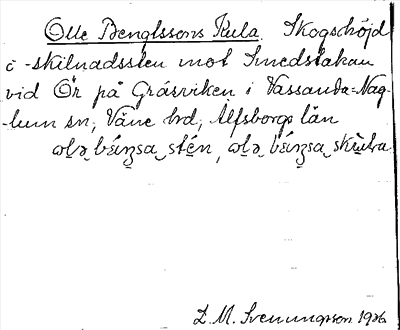 Olle Bengtssons Kula. Skogshöjd
o -skilnadssten mot Smedstakan
vid Ör på Gräsviken i Vassanda-Nag-
-lum sn, Väne hd, Älfsborgs län
stén,
L. M. Svenungsson 1926